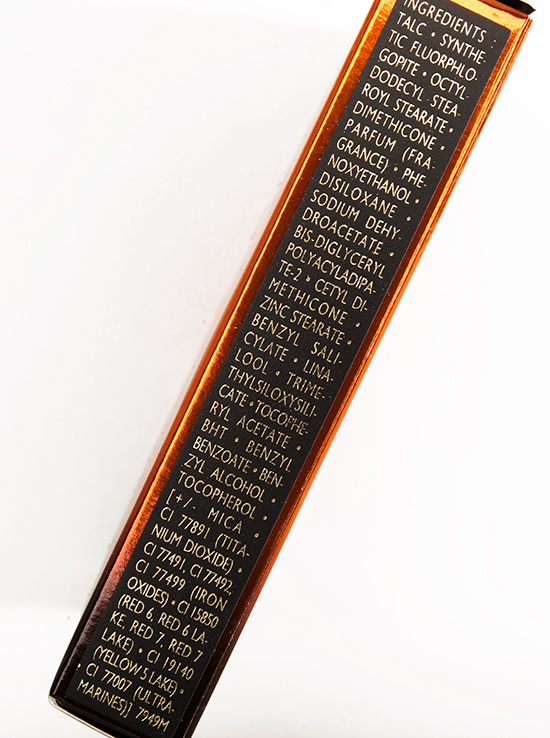 INGREDIENTS :
TALC • SYNTHE-
TIC FLUORPHLO-
GOPITE • OCTYL-
DODECYL STEA-
ROYL STEARATE •
DIMETHICONE •
PARFUM (FRA-
GRANCE) • PHE-
NOXYETHANOL •
DISILOXANE •
SODIUM DEHY-
DROACETATE •
BIS-DIGLYCERYL
POLYACYLADIPA-
TE-2 • CETYL DI-
METHICONE •
ZINC STEARATE •
BENZYL SALI-
CYLATE • LINA-
LOOL • TRIME-
THYLSILOXYSILI-
CATE • TOCOPHE-
RYL ACETATE •
BHT • BENZYL
BENZOATE • BEN-
ZYL ALCOHOL •
TOCOPHEROL •
[+/- MICA •
CI 77891 (TITA-
NIUM DIOXIDE) •
CI 77491, CI 77492,
CI 77499 (IRON
OXIDES) • CI 15850
(RED 6, RED 6 LA-
KE, RED 7, RED 7
LAKE) • CI 19140
(YELLOW 5 LAKE) •
CI 77007 (ULTRA-
MARINES)] 7949M